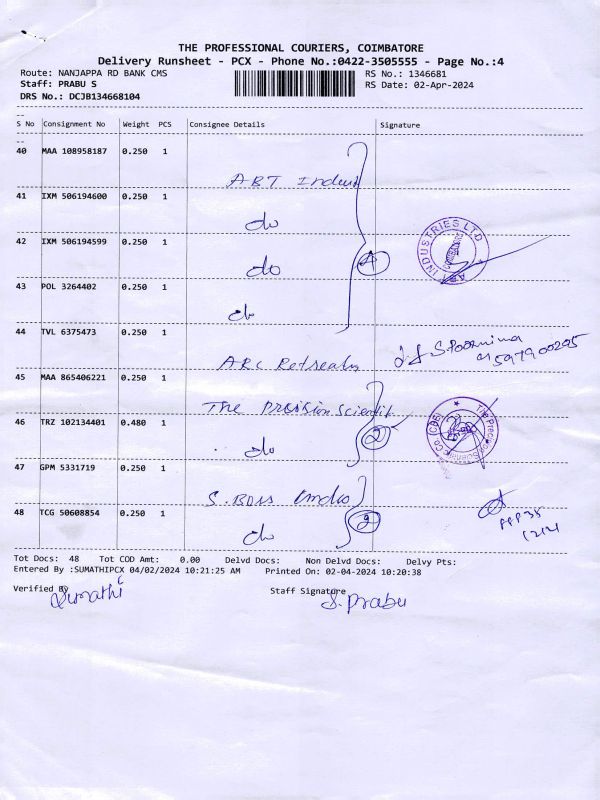 THE PROFESSIONAL COURIERS, COIMBATORE
Delivery Runsheet - PCX - Phone No.:0422-3505555 - Page No.:4
Route: NANJAPPA RD BANK CMS RS No.: 1346681
Staff: PRABU S RS Date: 02-Apr-2024
DRS No.: DCJB134668104
S No Consignment No Weight PCS Consignee Details Signature
40 MAA 108958187 0.250 1
ABT Indust
41 IXM 506194600 0.250 1
do
42 IXM 506194599 0.250 1
ABT INDUSTRIES LTD
do 4
43 POL 3264402 0.250 1
do
44 TVL 6375473 0.250 1
S. Poornima
ARC Retreads
45 MAA 865406221 0.250 1
The Precision Scientific
46 TRZ 102134401 0.480 1
The Precision Scientific Co. (CBE)
do 2
47 GPM 5331719 0.250 1
S. Bois India
48 TCG 50608854 0.250 1
do 2
Tot Docs: 48 Tot COD Amt: 0.00 Delvd Docs: Non Delvd Docs: Delvy Pts:
Entered By :SUMATHIPCX 04/02/2024 10:21:25 AM Printed On: 02-04-2024 10:20:38
Verified By Staff Signature
Sumathi S. Prabu